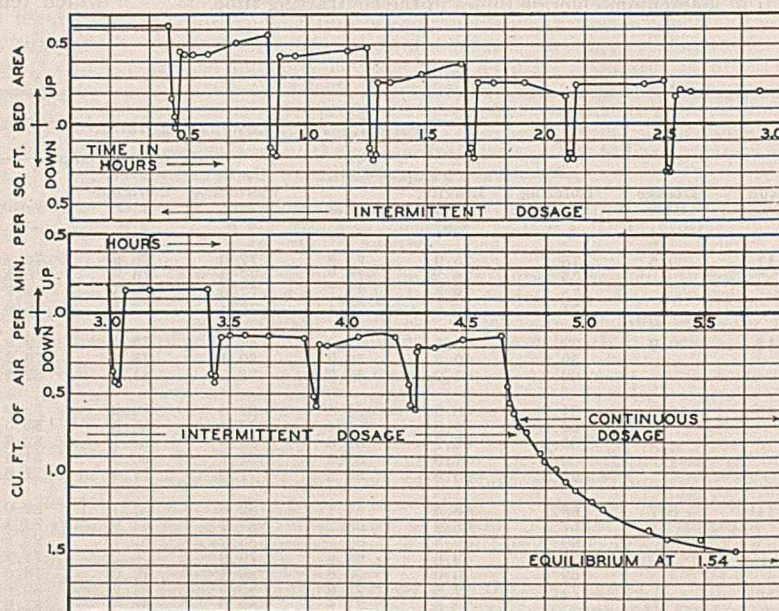 CU. FT. OF AIR PER MIN. PER SQ. FT. BED AREA
0.5
UP
.0
DOWN
0.5
TIME IN
HOURS
0.5
1.0
1.5
2.0
2.5
3.0
INTERMITTENT DOSAGE
0.5
UP
.0
DOWN
0.5
1.0
1.5
HOURS
3.0
3.5
4.0
4.5
5.0
5.5
INTERMITTENT DOSAGE
CONTINUOUS
DOSAGE
EQUILIBRIUM AT 1.54